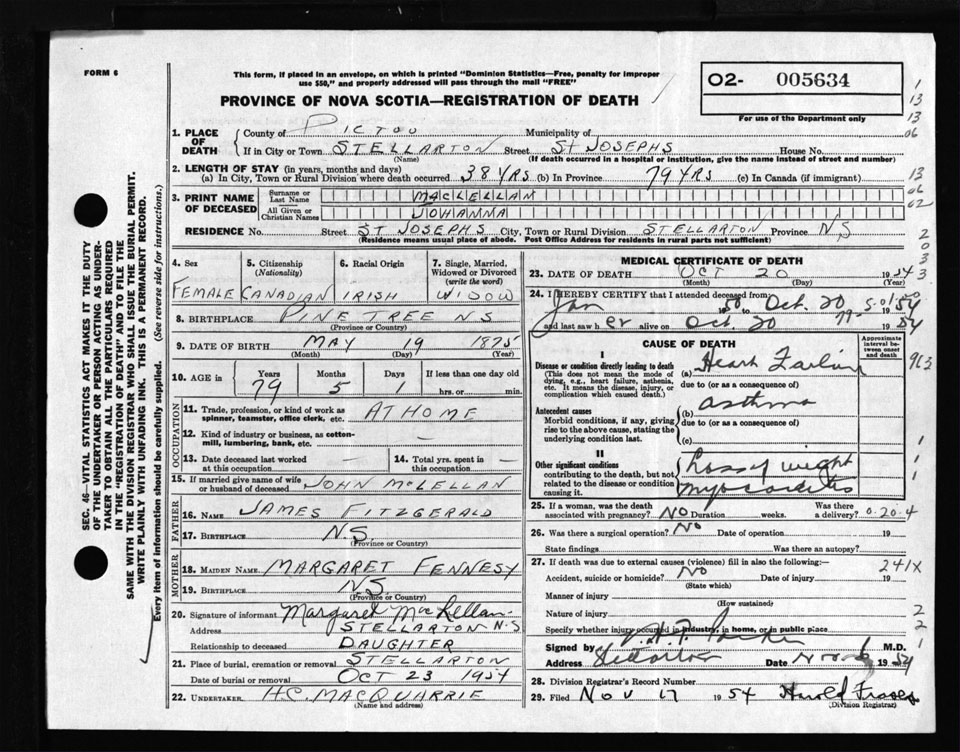 FORM 6
This form, if placed in an envelope, on which is printed "Dominion Statistics—Free, penalty for improper
use $50," and properly addressed will pass through the mail "FREE"
PROVINCE OF NOVA SCOTIA—REGISTRATION OF DEATH
O2- 005634
For use of the Department only
1. PLACE OF DEATH
County of PICTOU Municipality of
If in City or Town STELLARTON Street ST JOSEPHS House No.
(Name) (If death occurred in a hospital or institution, give the name instead of street and number)
2. LENGTH OF STAY (in years, months and days)
(a) In City, Town or Rural Division where death occurred 38 YRS (b) In Province 79 YRS (c) In Canada (if immigrant)
3. PRINT NAME OF DECEASED
Surname or Last Name MACLELLAN
All Given or Christian Names JOHANNA
RESIDENCE No. Street ST JOSEPHS City, Town or Rural Division STELLARTON Province NS
(Residence means usual place of abode. Post Office Address for residents in rural parts not sufficient)
4. Sex FEMALE
5. Citizenship (Nationality) CANADIAN
6. Racial Origin IRISH
7. Single, Married, Widowed or Divorced (write the word) WIDOW
8. BIRTHPLACE PINE TREE NS
(Province or Country)
9. DATE OF BIRTH MAY 19 1875
(Month) (Day) (Year)
10. AGE in Years Months Days If less than one day old
79 5 1 hrs. or min.
OCCUPATION
11. Trade, profession or kind of work as spinner, teamster, office clerk, etc. AT HOME
12. Kind of industry or business, as cotton-mill, lumbering, bank, etc. —
13. Date deceased last worked at this occupation —
14. Total yrs. spent in this occupation —
15. If married give name of wife or husband of deceased JOHN McLELLAN
FATHER
16. NAME JAMES FITZGERALD
17. BIRTHPLACE N.S.
(Province or Country)
MOTHER
18. MAIDEN NAME MARGARET FENNESY
19. BIRTHPLACE N.S.
(Province or Country)
20. Signature of informant Margaret MacLellan
Address STELLARTON N.S
Relationship to deceased DAUGHTER
21. Place of burial, cremation or removal STELLARTON
Date of burial or removal OCT 23 1954
22. UNDERTAKER H.C. MACQUARRIE
(Name and address)
MEDICAL CERTIFICATE OF DEATH
23. DATE OF DEATH OCT 20 1954
(Month) (Day)
24. I HEREBY CERTIFY that I attended deceased from
Jan 1950 to Oct. 20 1954
and last saw her alive on Oct. 20 1954
79-501
CAUSE OF DEATH
Approximate interval between onset and death
I
Disease or condition directly leading to death
(This does not mean the mode of dying, e.g., heart failure, asthenia, etc. It means the disease, injury, or complication which caused death.)
(a) Heart Failure
due to (or as a consequence of)
Antecedent causes
Morbid conditions, if any, giving rise to the above cause, stating the underlying condition last.
(b) asthma
due to (or as a consequence of)
(c)
II
Other significant conditions
contributing to the death, but not related to the disease or condition causing it.
Loss of weight
myocarditis
25. If a woman, was the death associated with pregnancy? NO Duration weeks. Was there a delivery?
0-20-4
26. Was there a surgical operation? No Date of operation 19
State findings Was there an autopsy?
27. If death was due to external causes (violence) fill in also the following:—
241X
Accident, suicide or homicide? No Date of injury 19
(State which)
Manner of injury
(How sustained)
Nature of injury
Specify whether injury occurred in industry, in home, or in public place
Signed by M.D.
Address Stellarton Date Nov. 6 1954
28. Division Registrar's Record Number
29. Filed Nov 17 1954 Harold Fraser
(Division Registrar)
SEC. 46—VITAL STATISTICS ACT MAKES IT THE DUTY
OF THE UNDERTAKER OR PERSON ACTING AS UNDER-
TAKER TO OBTAIN ALL THE PARTICULARS REQUIRED
IN THE "REGISTRATION OF DEATH" AND TO FILE THE
SAME WITH THE DIVISION REGISTRAR WHO SHALL ISSUE THE BURIAL PERMIT.
WRITE PLAINLY WITH UNFADING INK. THIS IS A PERMANENT RECORD.
Every item of information should be carefully supplied. (See reverse side for instructions.)
1
13
13
06
13
06
02
2
0
3
3
963
1
1
1
2
2
1